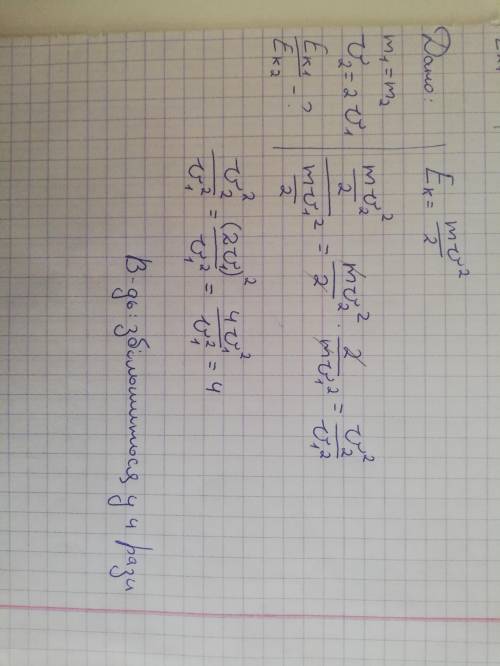 Дано:
m₁ = m₂
v₂ = 2v₁
Eк₁/Eк₂ - ?
Eк = mv²/2
(mv₂²/2)/(mv₁²/2) = mv₂²/2 · 2/mv₁² = v₂²/v₁²
v₂²/v₁² = (2v₁)²/v₁² = 4v₁²/v₁² = 4
В-дь: збільшиться у 4 рази